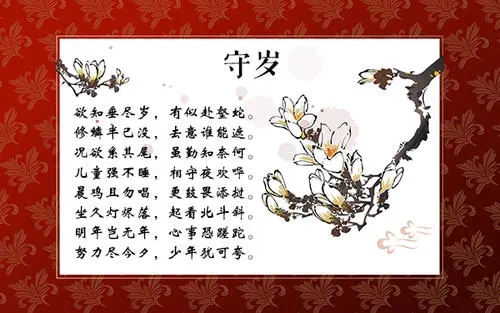 守岁
欲知垂尽岁，有似赴壑蛇。
修鳞半已没，去意谁能遮。
况欲系其尾，虽勤知奈何。
儿童强不睡，相守夜欢哗。
晨鸡且勿唱，更鼓畏添挝。
坐久灯烬落，起看北斗斜。
明年岂无年，心事恐蹉跎。
努力尽今夕，少年犹可夸。